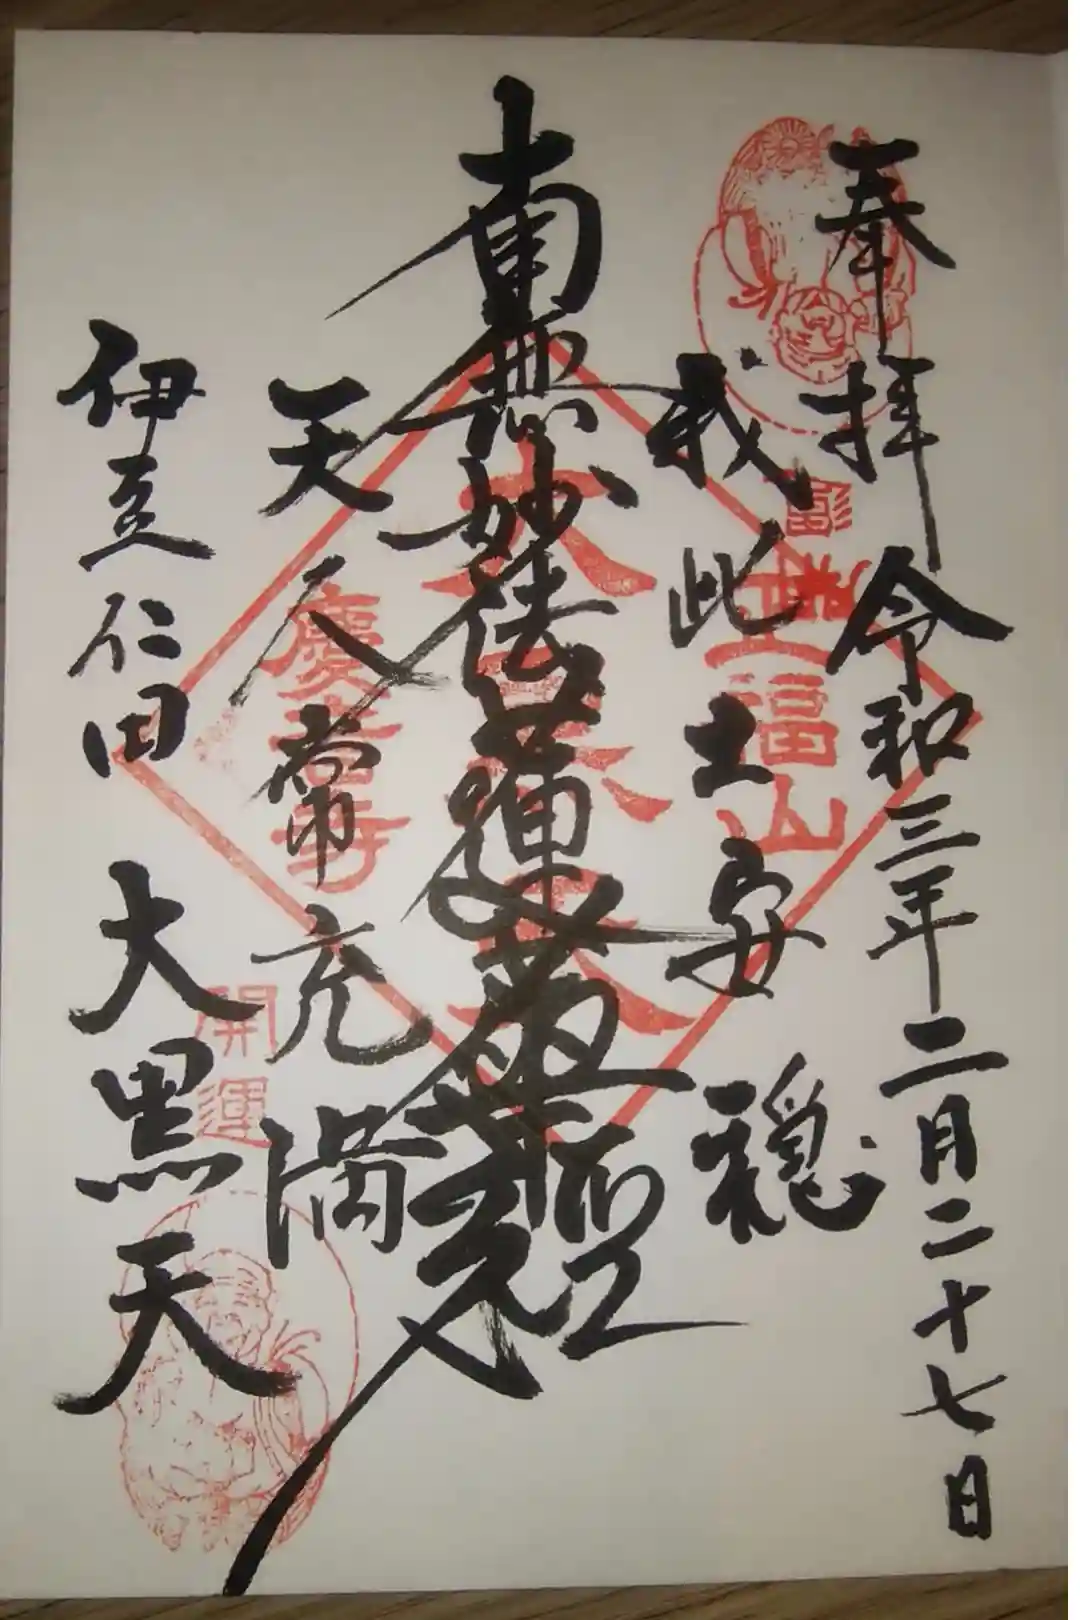 奉拝 令和三年二月二十七日
我此土安穏
南無妙法蓮華経
天人常充満
伊豆仁田 大黒天
正福山
大黒天
慶音寺
開運